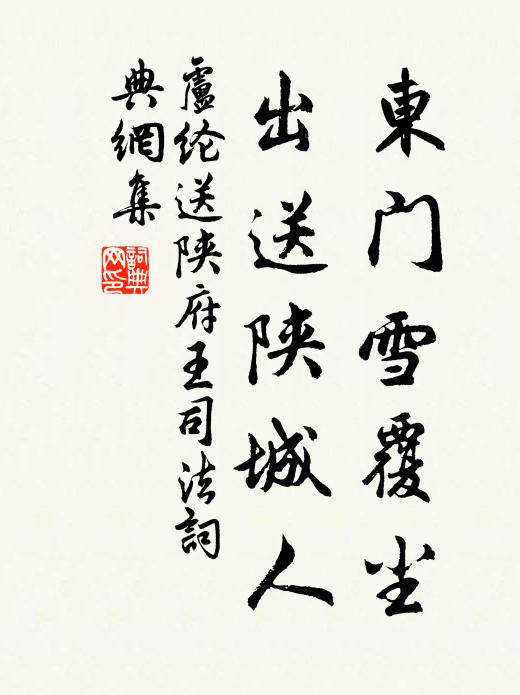 東门雪覆尘
出送陕城人
盧纶送陕府王司法詞
典網集
詞典网印